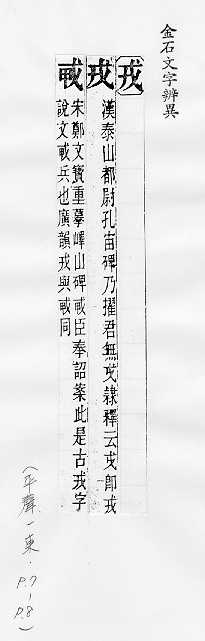 金石文字辨異
戎
漢泰山都尉孔宙碑乃擢君無戎隸釋云戎即戎
宋鄭文寶重摹嶧山碑臣奉詔案此是古戎字
說文兵也廣韻戎與同
(平聲一東·P.7-P.8)